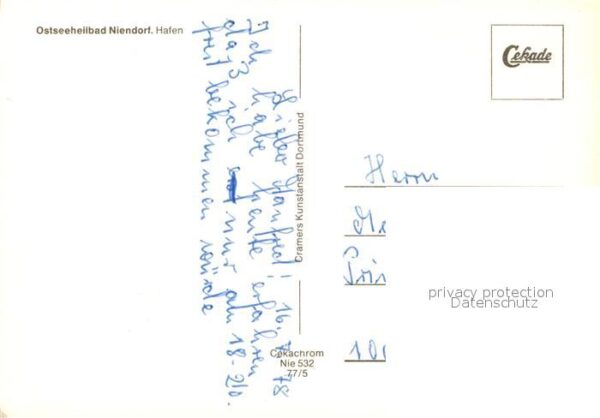 Ostseeheilbad Niendorf. Hafen
Cekade
16. 7. 78
Lieber Manfred!
Ich habe heute erfahren
daß ich nur am 18.-20.
frei bekommen würde
Cramers Kunstanstalt Dortmund
Cekachrom
Nie 532
77/5
Herrn
10
privacy protection
Datenschutz